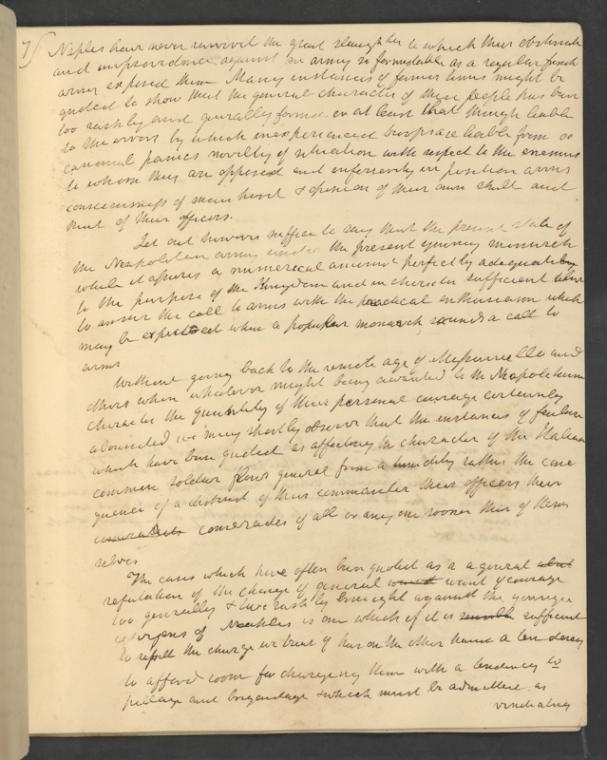 7
Naples have never survived the great slaughter to which their obstinate
and improvidence against an army so formidable as a regular french
army exposed them Many instances of former times might be
quoted to show that the general character of these people has been
too rashly and generally formed or at least that though liable
to the errors by which inexperienced troops are liable from oc
casional panics novelty of situation with respect to the enemies
to whom they are opposed and inferiority in position arms
consciousness of & opinion of their own skill and
that of their officers.
Let out however suffice to say that the present state of
the Neapolitan army under the present young monarch
while it affords a numerical amount perfectly adequate
to the purpose of the Kingdom and in character sufficient
to answer the call to arms with the practical enthusiasm which
may be expected when a popular monarch sounds a call to
arms
Without going back to the remote age of and
others when whatever might being awarded to the Neapolitan
character the quantity of their personal courage certainly
abounded we may shortly observe that the instances of failure
which have been quoted as affecting the character of the Italian
common soldier flows general from a timidity rather the conse
quence of a distrust of their commander their officers their
comrades of all or any one sooner than of them
selves
The cases which have often been quoted as a general
refutation of the charge of general want of courage
too generally & too rashly brought against the younger
of Naples is one which if it is sufficient
to refute the charge we trust has on the other hand a tendency
to afford room for charging them with a tendency to
pillage and brigandage & which must be admitted as
vindicating